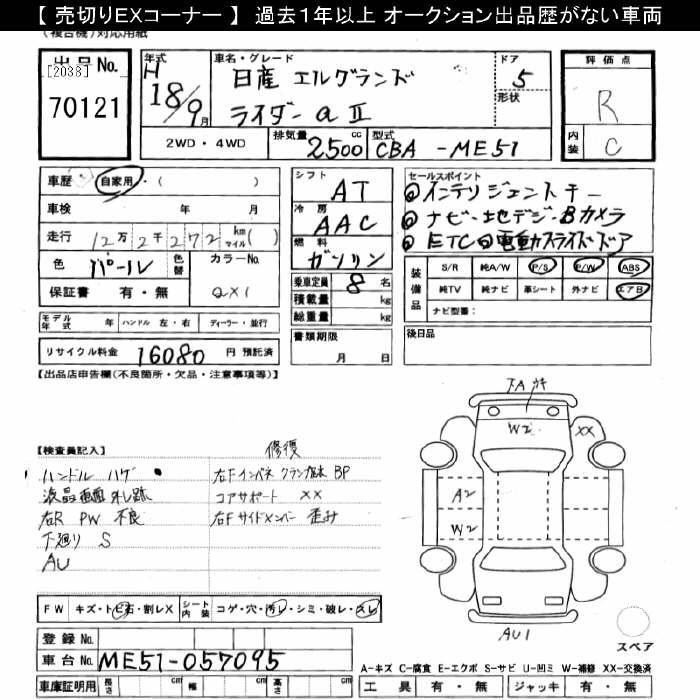 【 売切りEXコーナー 】 過去1年以上 オークション出品歴がない車両
(複合機)対応用紙
出品No.
[2038]
70121
年式
H 18/9月
車名・グレード
日産 エルグランド
ライダーα II
ドア
5
形状
2WD・4WD
排気量
2500 cc
型式
CBA -ME51
評価点
R
内装
C
車歴 自家用・( )
車検 年 月
走行 12万2千272 km マイル( )
色 パール 色替 カラーNo.
保証書 有・無 QX1
シフト
AT
冷房
AAC
燃料
ガソリン
乗車定員 8 名
積載量 kg
総重量 kg
書類期限
月 日
セールスポイント
◎インテリジェントキー
◎ナビ・地デジ・Bカメラ
◎ETC◎電動スライドドア
装備品
S/R 純A/W P/S P/W ABS
純TV 純ナビ 革シート 外ナビ エアB
ナビ型番:
後日品
モデル年式 年 ハンドル 左・右 ディーラー・並行
リサイクル料金 16080 円 預託済
【出品店申告欄(不良箇所・欠品・注意事項等)】
【検査員記入】
修復
ハンドル ハゲ
右Fインパネ BP
液晶画面 跡
コアサポート XX
右R PW 不良
右Fサイドメンバー 歪み
下廻り S
AU
下A
W2
XX
A2
W2
AU1
スペア
FW キズ・ト石・割レX シート内装 コゲ・穴・汚レ・シミ・破レ・スレ
登録No.
車台No. ME51-057095
車庫証明用 長さ cm 幅 cm 高さ cm
A-キズ C-腐食 E-エクボ S-サビ U-凹ミ W-補修 XX-交換済
工具 有・無 ジャッキ 有・無